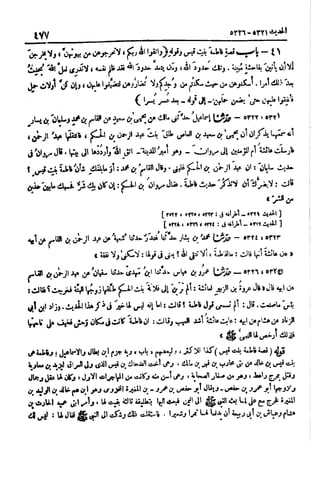 الحديث ٥٣٢١ - ٥٣٢٦ ٤٧٧
٤١ - باب قصة فاطمة بنت قيس وقوله ﴿واتقوا الله ربكم، لا تخرجوهن من بيوتهن، ولا يخرجن
إلا أن يأتين بفاحشة مبينة، وتلك حدود الله، ومن يتعد حدود الله فقد ظلم نفسه، لا تدري لعل الله يحدث
بعد ذلك أمرا. أسكنوهن من حيث سكنتم من وجدكم ولا تضاروهن لتضيقوا عليهن، وإن كن أولات حمل
فأنفقوا عليهن حتى يضعن حملهن - إلى قوله - بعد عسر يسرا﴾
٥٣٢١، ٥٣٢٢ - حدثنا إسماعيل حدثنا مالك عن يحيى بن سعيد عن القاسم بن محمد وسليمان بن يسار
أنه سمعهما يذكران أن يحيى بن سعيد بن العاص طلق بنت عبد الرحمن بن الحكم، فانتقلها عبد الرحمن،
فأرسلت عائشة أم المؤمنين إلى مروان - وهو أمير المدينة - اتق الله وارددها إلى بيتها. قال مروان في
حديث سليمان: إن عبد الرحمن بن الحكم غلبني. وقال القاسم بن محمد: أو ما بلغك شأن فاطمة بنت قيس؟
قالت: لا يضرك أن لا تذكر حديث فاطمة. فقال مروان بن الحكم: إن كان بك شر فحسبك ما بين هذين
من الشر»
[الحديث ٥٣٢١ - أطرافه في: ٥٣٢٣، ٥٣٢٥، ٥٣٢٧]
[الحديث ٥٣٢٢ - أطرافه في: ٥٣٢٤، ٥٣٢٦، ٥٣٢٨]
٥٣٢٣، ٥٣٢٤ - حدثنا محمد بن بشار حدثنا غندر حدثنا شعبة عن عبد الرحمن بن القاسم عن أبيه
عن عائشة أنها قالت: ما لفاطمة، ألا تتقي الله؟ يعني في قولها: لا سكنى ولا نفقة»
٥٣٢٥، ٥٣٢٦ - حدثنا عمرو بن عباس حدثنا ابن مهدي حدثنا سفيان عن عبد الرحمن بن القاسم
عن أبيه قال «قال عروة بن الزبير لعائشة: ألم تري إلى فلانة بنت الحكم طلقها زوجها البتة فخرجت؟ فقالت:
بئس ما صنعت. قال: ألم تسمعي قول فاطمة؟ قالت: أما إنه ليس لها خير في ذكر هذا الحديث. وزاد ابن أبي
الزناد عن هشام عن أبيه: عابت عائشة أشد العيب وقالت: إن فاطمة كانت في مكان وحش فخيف على ناحيتها
فلذلك أرخص لها النبي ﷺ»
قوله (قصة فاطمة بنت قيس) كذا للأكثر، ولبعضهم «باب» وبه جزم ابن بطال والإسماعيلي؛ وفاطمة هي
بنت قيس بن خالد من بني محارب بن فهر بن مالك، وهي أخت الضحاك بن قيس الذي ولي العراق ليزيد بن معاوية
وقتل بمرج راهط، وهو من صغار الصحابة، وهي أسن منه وكانت من المهاجرات الأول، وكان لها عقل وجمال
وتزوجها أبو عمرو بن حفص - ويقال أبو حفص بن عمرو - بن المغيرة المخزومي، وهو ابن عم خالد بن الوليد بن
المغيرة فخرج مع علي لما بعثه النبي ﷺ إلى اليمن فبعث إليها بتطليقة ثالثة بقيت لها، وأمر ابني عميه الحارث بن
هشام وعياش بن أبي ربيعة أن يدفعا لها تمرا وشعيرا، فاستقلت ذلك وشكت إلى النبي ﷺ فقال لها: ليس لك